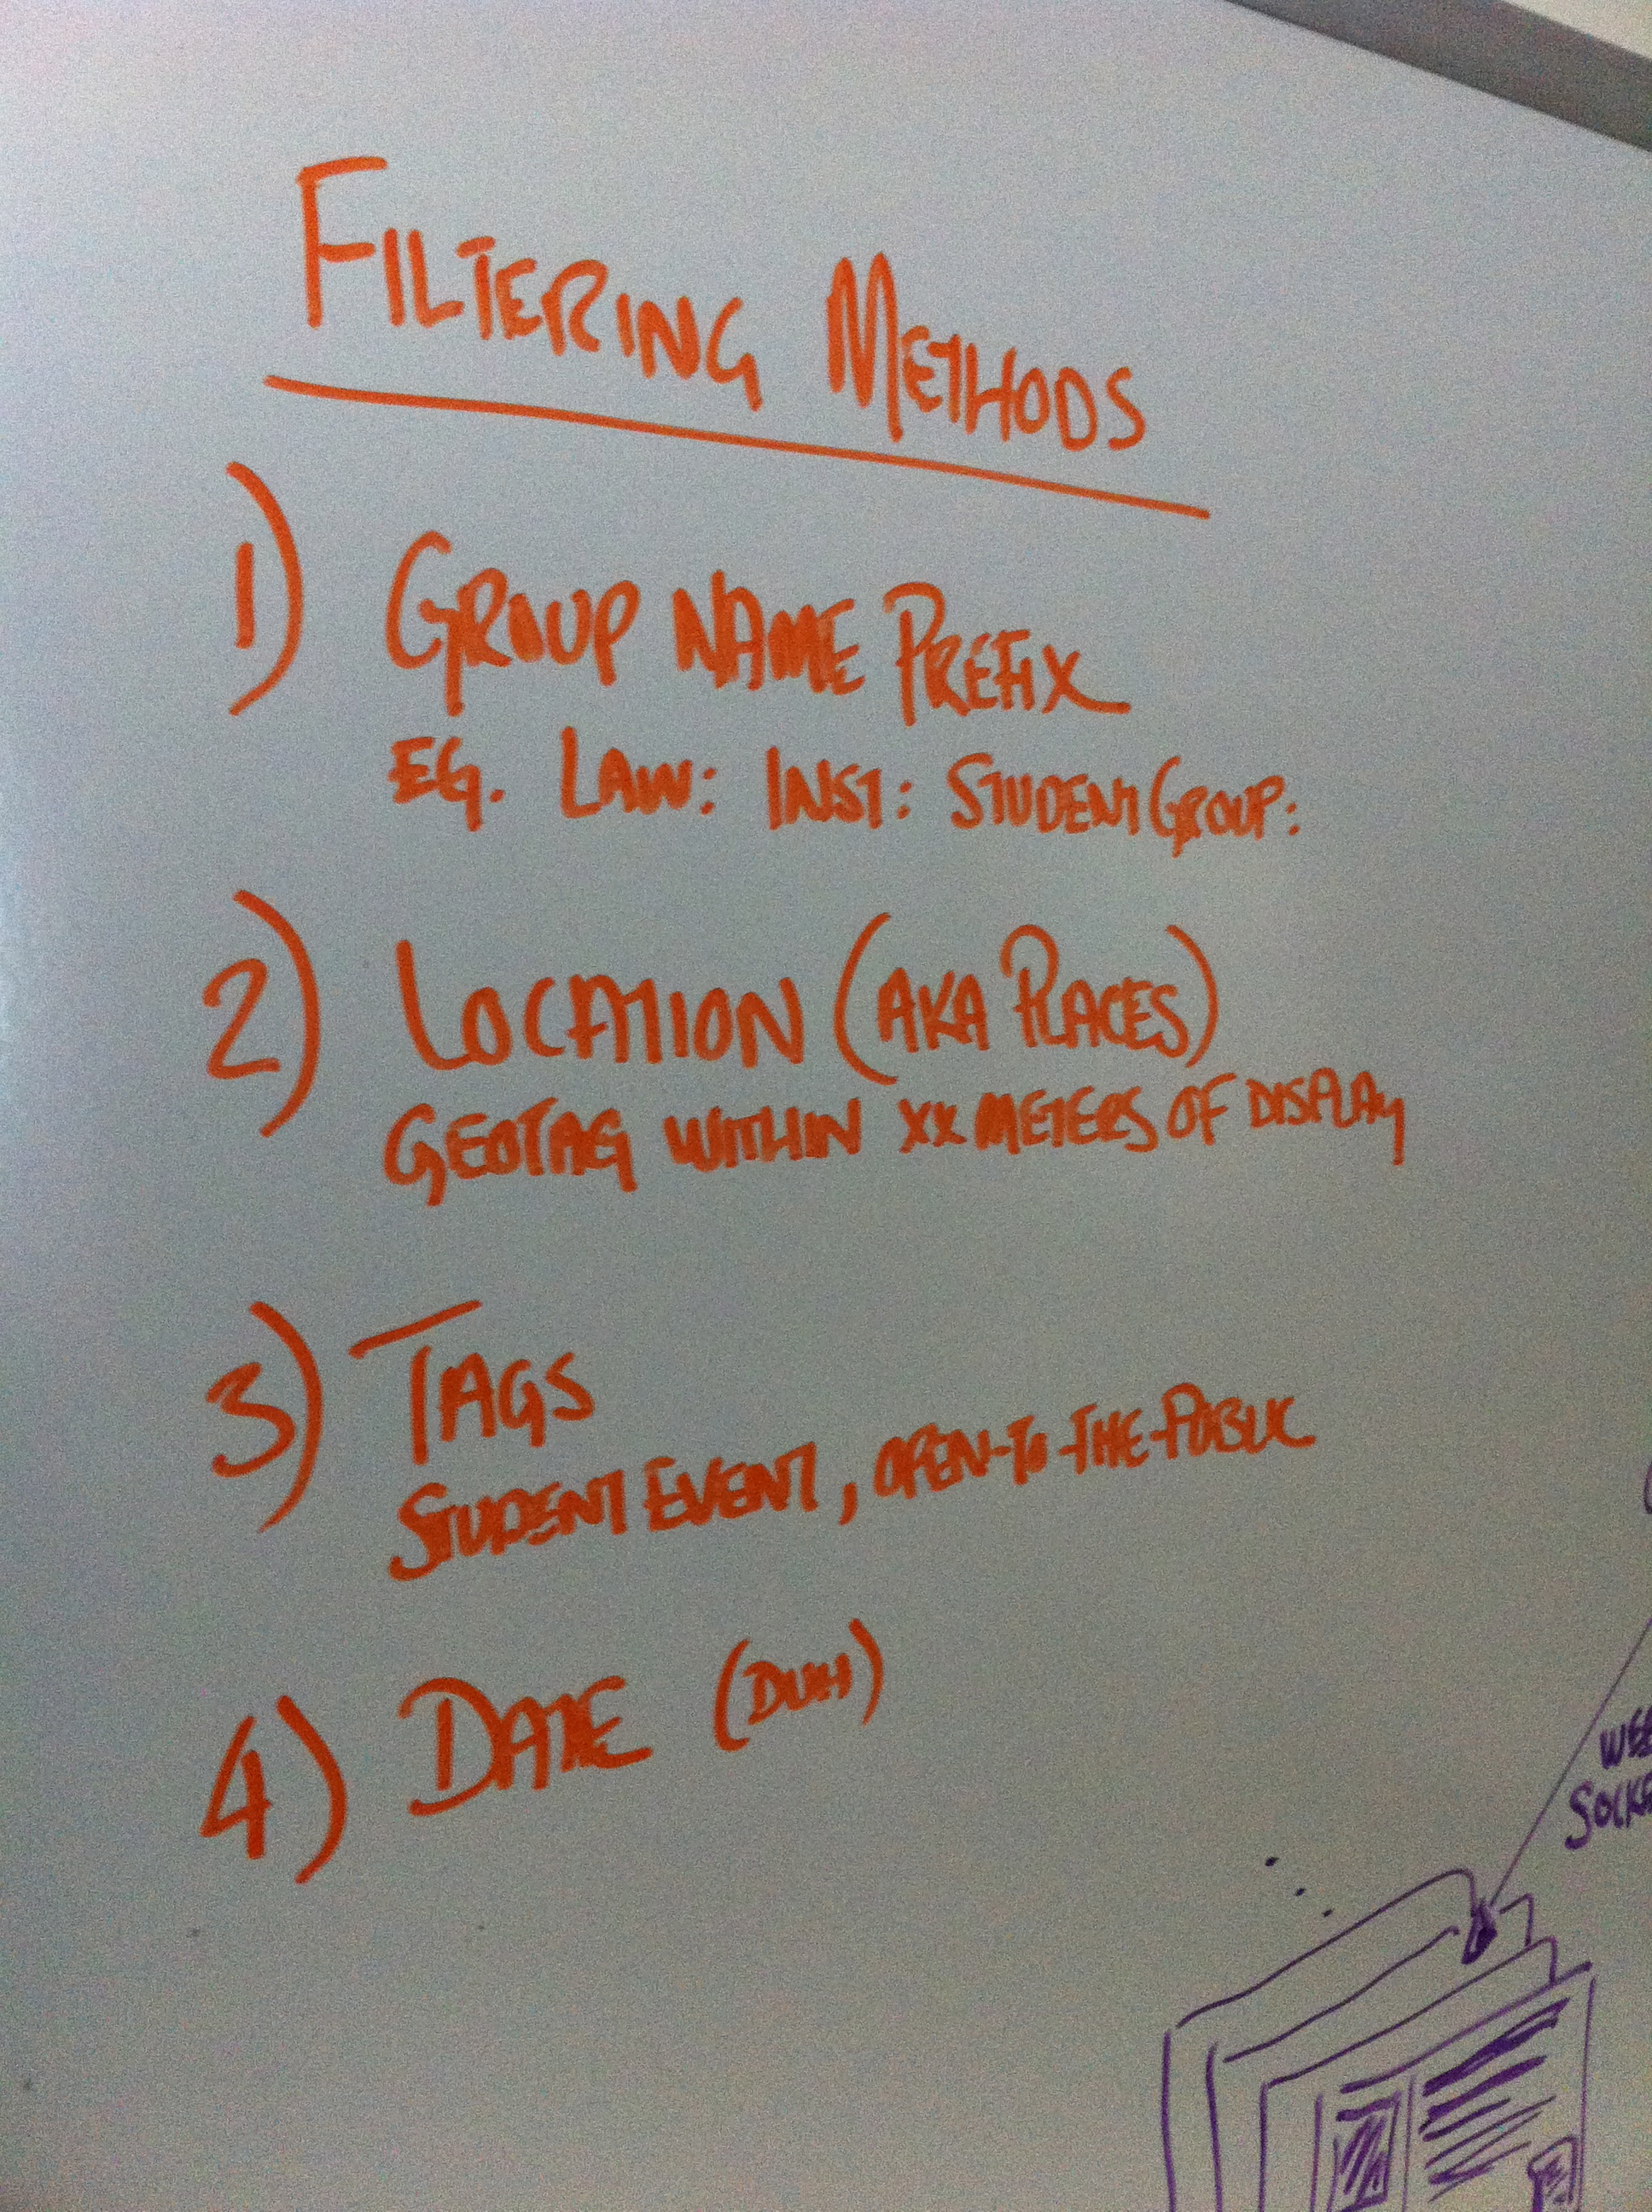 FILTERING METHODS
1) GROUP NAME PREFIX
EG. LAW: INST: STUDENT GROUP:
2) LOCATION (AKA PLACES)
GEOTAG WITHIN XX METERS OF DISPLAY
3) TAGS
STUDENT EVENT, OPEN-TO-THE-PUBLIC
4) DATE (DUH)